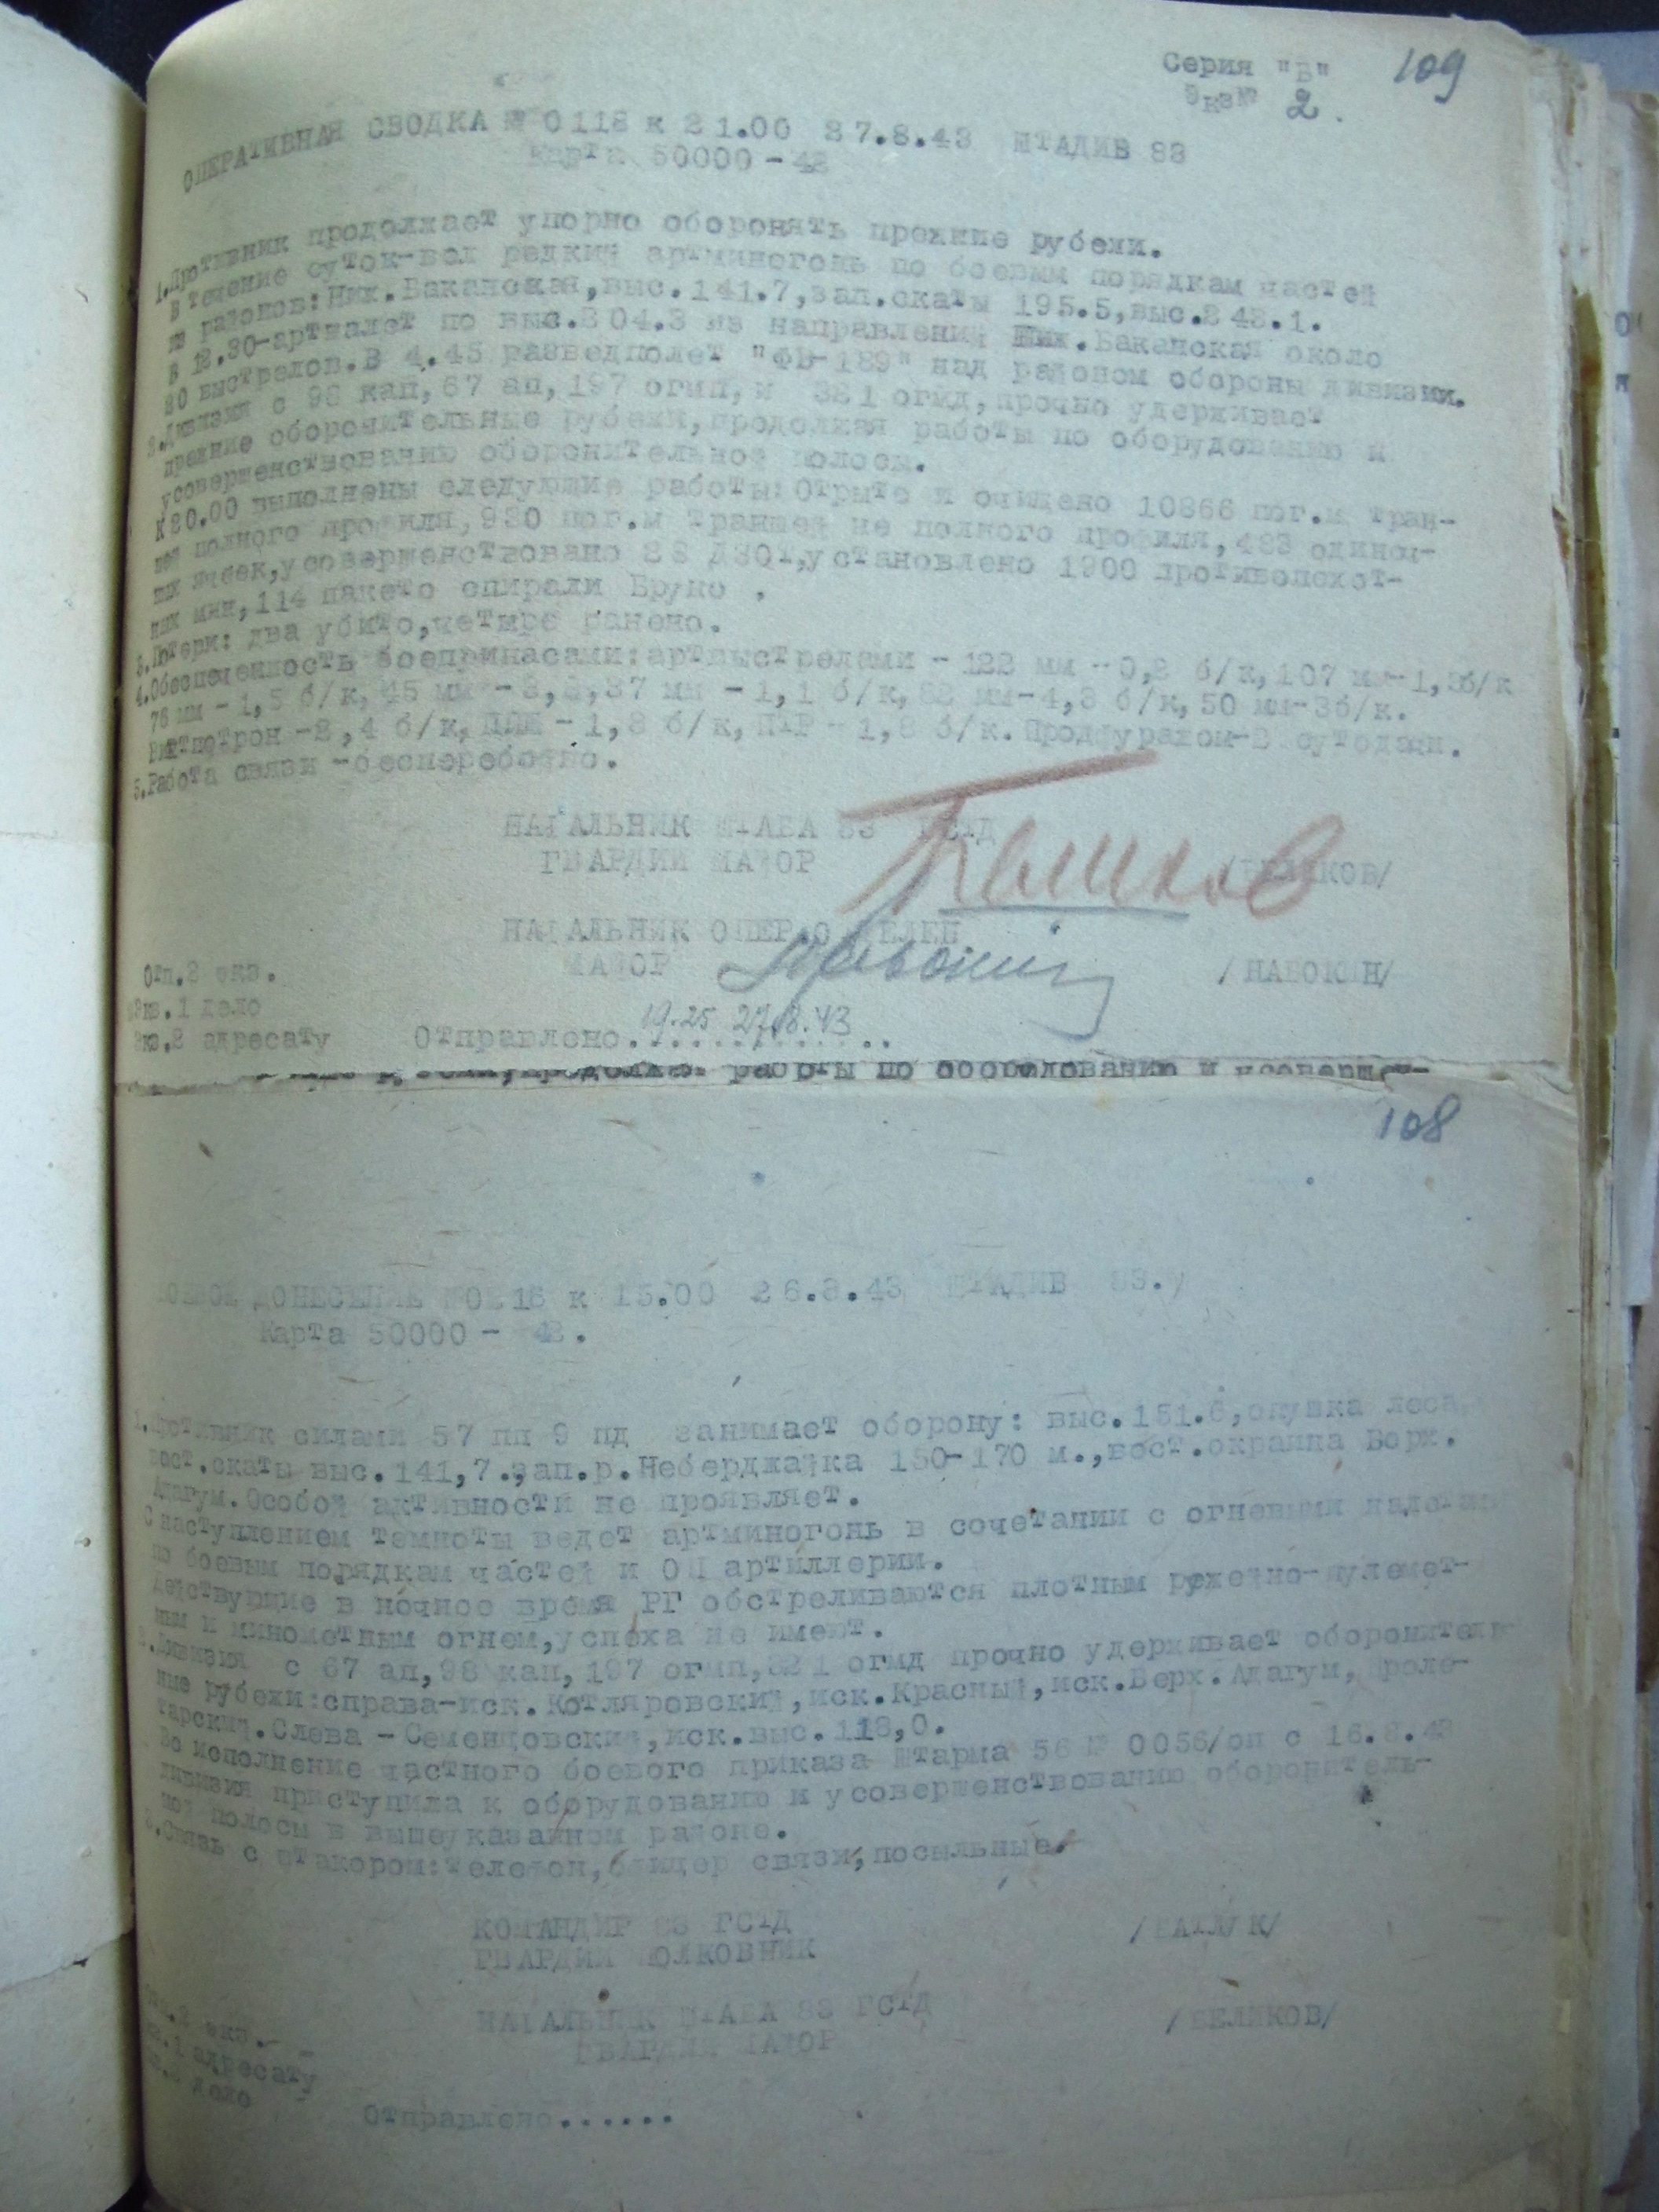 109
Серия "В"
Экз№ 2.
ОПЕРАТИВНАЯ СВОДКА № 0118 к 21.00 27.8.43 ШТАДИВ 83
Карта 50000 - 42
1.Противник продолжает упорно оборонять прежние рубежи.
В течение суток-вел редкий артминогонь по боевым порядкам частей
из районов: Ниж.Баканская, выс.141.7, зап.скаты 195.5, выс.243.1.
В 12.30-артналет по выс.204.3 из направления Ниж.Баканская около
20 выстрелов. В 4.45 разведполет "ФВ-189" над районом обороны дивизии.
2.Дивизия с 98 кап, 67 ап, 197 огмп, и 321 огмд, прочно удерживает
прежние оборонительные рубежи, продолжая работы по оборудованию и
усовершенствованию оборонительной полосы.
К 20.00 выполнены следующие работы: Отрыто и очищено 10866 пог.м. тран-
шей полного профиля, 930 пог.м траншей не полного профиля, 483 одиноч-
ных ячеек, усовершенствовано 28 ДЗОТ, установлено 1900 противопехот-
ных мин, 114 пакето спирали Бруно .
3.Потери: два убито, четыре ранено.
4.Обеспеченность боеприпасами: артвыстрелами - 122 мм - 0,8 б/к, 107 мм- 1, б/к
76 мм - 1,5 б/к, 45 мм - 37 мм - 1,1 б/к, 82 мм-4,3 б/к, 50 мм-3б/к.
Винтпатрон -2,4 б/к, ППШ - 1,8 б/к, ПТР - 1,8 б/к. Продфуражом-В сутодачи.
5.Работа связи - бесперебойно.
НАЧАЛЬНИК ШТАБА 83 ГСТД
ГВАРДИИ МАЙОР /БЕЛИКОВ/
НАЧАЛЬНИК ОПЕР.ОТДЕЛЕН
МАЙОР /НАВОКИН/
Отп.2 экз.
Экз.1 дело
Экз.2 адресату Отправлено 19.25 27.8.43
работы по оборудованию и усовершен-
108
БОЕВОЕ ДОНЕСЕНИЕ №0216 к 15.00 26.8.43 ШТАДИВ 83.
Карта 50000 - 42.
1.Противник силами 57 пп 9 пд занимает оборону: выс.151.6, опушка леса
вост.скаты выс.141,7., зап.р.Неберджайка 150-170 м., вост.окраина Верх.
Адагум. Особой активности не проявляет.
С наступлением темноты ведет артминогонь в сочетании с огневыми налетами
по боевым порядкам частей и ОП артиллерии.
Действующие в ночное время РГ обстреливаются плотным ружейно-пулемет-
ным и минометным огнем, успеха не имеют.
2.Дивизия с 67 ап, 98 кап, 197 огмп, 321 огмд прочно удерживает оборонитель-
ные рубежи: справа-иск.Котляровский, иск.Красный, иск.Верх.Адагум, Проле-
тарский. Слева - Семенцовский, иск.выс.118,0.
Во исполнение частного боевого приказа Штарма 56 № 0056/оп с 16.8.43
дивизия приступила к оборудованию и усовершенствованию оборонитель-
ной полосы в вышеуказанном районе.
3.Связь с штакором: телефон, офицер связи, посыльные.
КОМАНДИР 83 ГСТД
ГВАРДИИ ПОЛКОВНИК /БАТЛУК/
НАЧАЛЬНИК ШТАБА 83 ГСТД
ГВАРДИИ МАЙОР /БЕЛИКОВ/
Отп.2 экз.
Экз.1 адресату
Экз.2 дело
Отправлено......